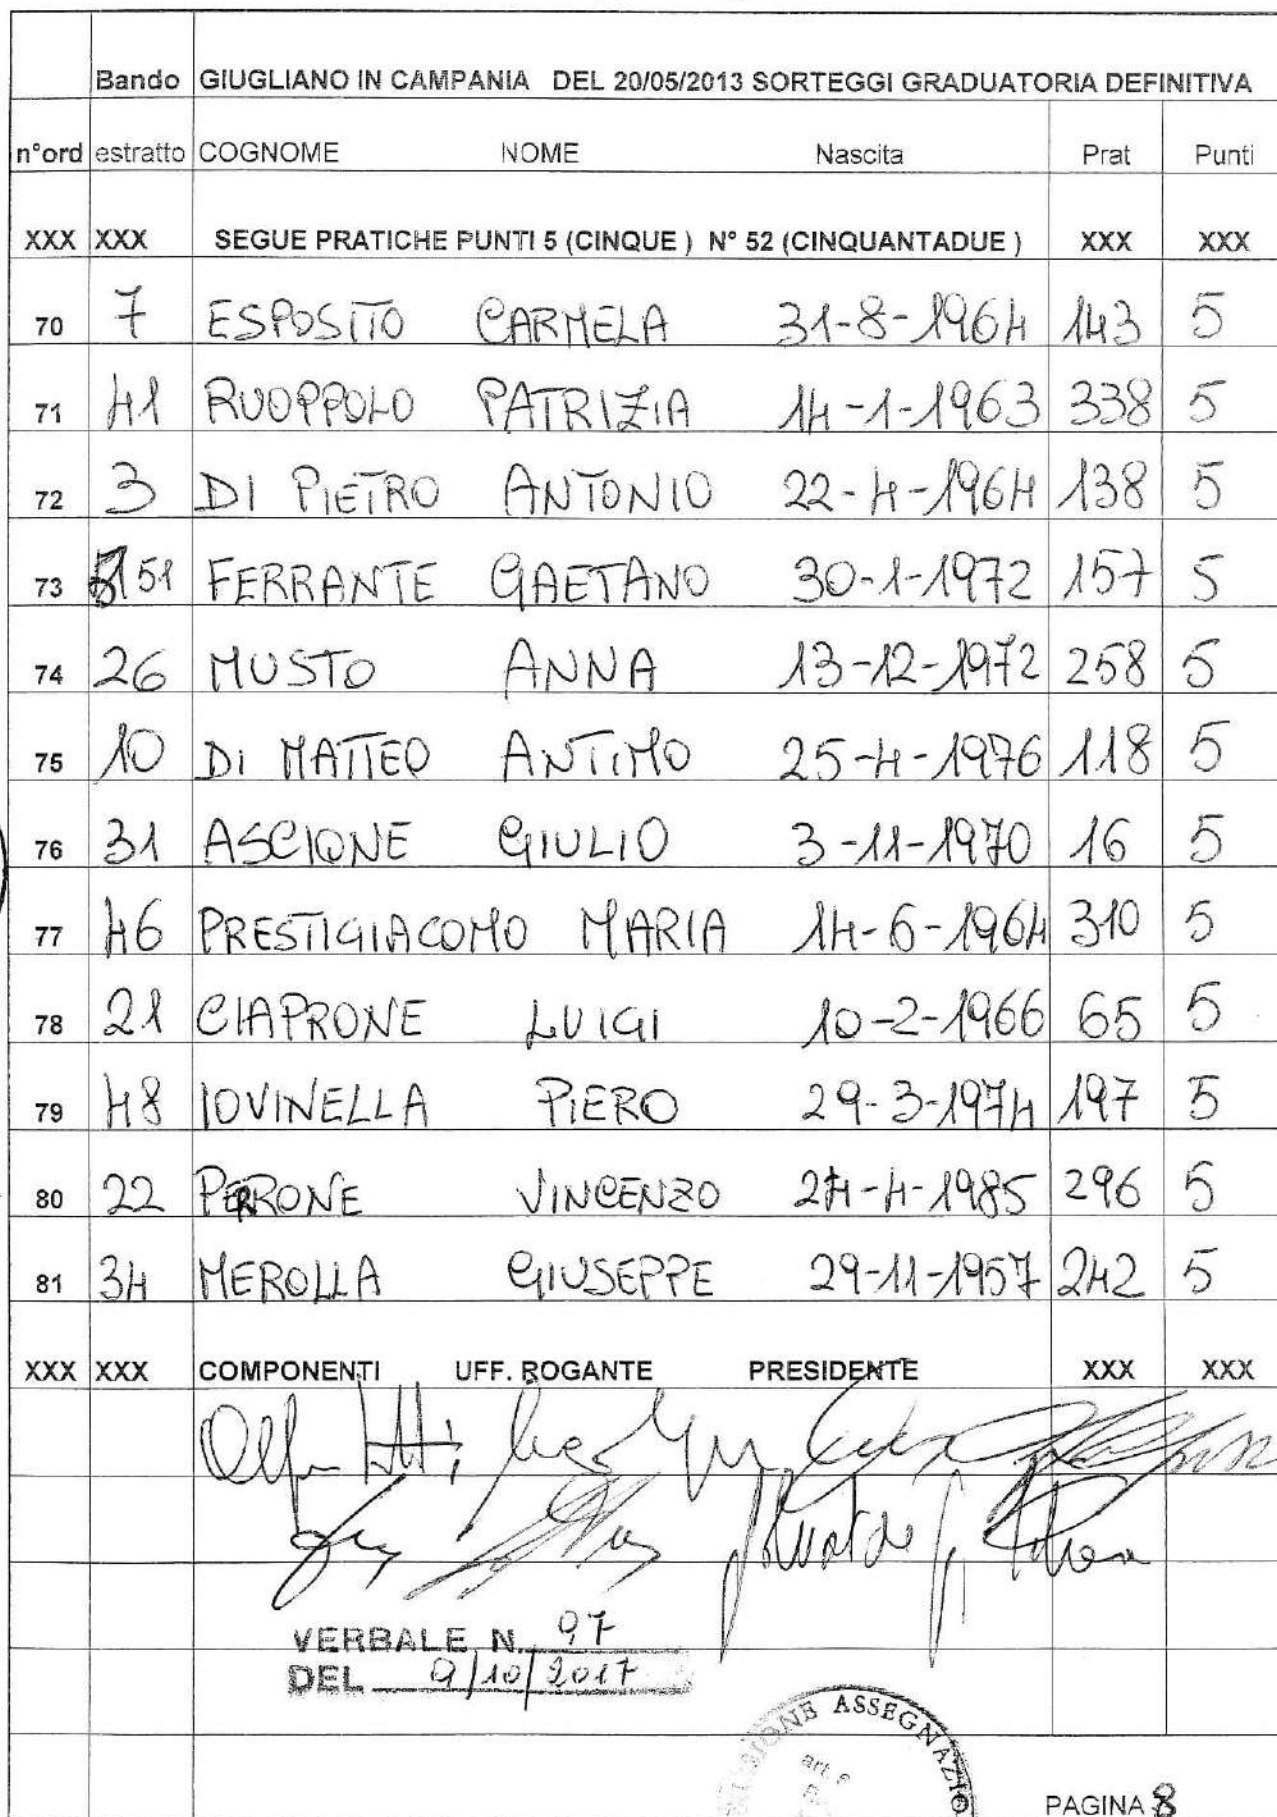 Bando GIUGLIANO IN CAMPANIA DEL 20/05/2013 SORTEGGI GRADUATORIA DEFINITIVA
n°ord estratto COGNOME NOME Nascita Prat Punti
XXX XXX SEGUE PRATICHE PUNTI 5 (CINQUE ) N° 52 (CINQUANTADUE ) XXX XXX
70 7 ESPOSITO CARMELA 31-8-1964 143 5
71 41 RUOPPOLO PATRIZIA 14-1-1963 338 5
72 3 DI PIETRO ANTONIO 22-4-1964 138 5
73 51 FERRANTE GAETANO 30-1-1972 157 5
74 26 MUSTO ANNA 13-12-1972 258 5
75 10 DI MATTEO ANTIMO 25-4-1976 118 5
76 31 ASCIONE GIULIO 3-11-1970 16 5
77 46 PRESTIGIACOMO MARIA 14-6-1964 310 5
78 21 CIAPRONE LUIGI 10-2-1966 65 5
79 48 IOVINELLA PIERO 29-3-1974 197 5
80 22 PERRONE VINCENZO 24-4-1985 296 5
81 34 MEROLLA GIUSEPPE 29-11-1957 242 5
XXX XXX COMPONENTI UFF. ROGANTE PRESIDENTE XXX XXX
VERBALE N. 97
DEL 9/10/2017
ASSEGNAZIO
art.
PAGINA 8